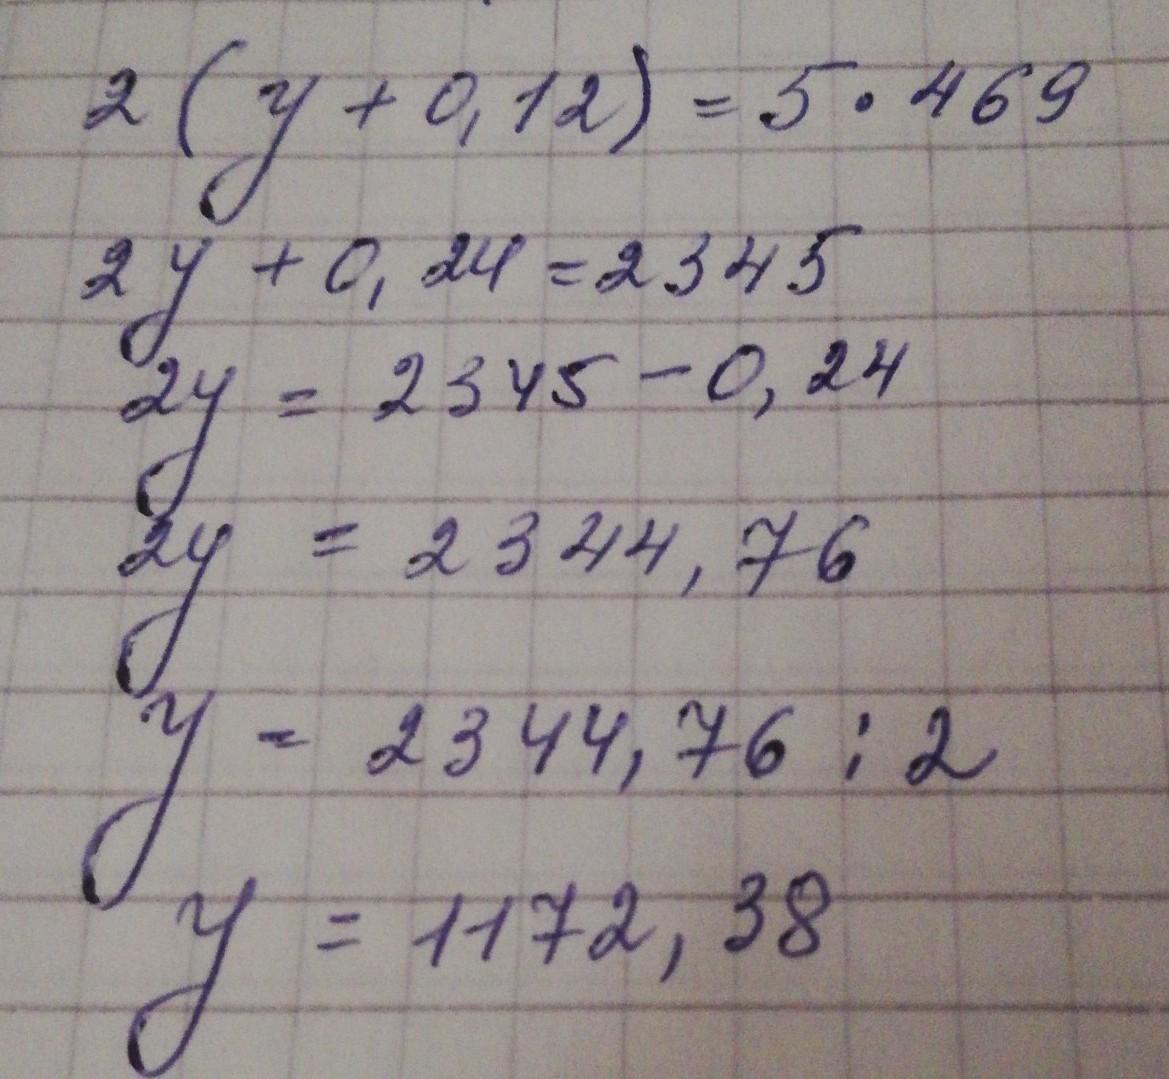 2(y+0,12)=5·469
2y+0,24=2345
2y=2345-0,24
2y=2344,76
y=2344,76:2
y=1172,38